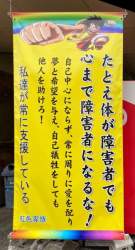 たとえ体が障害者でも
心まで障害者になるな!
自己中心にならず、常に周りに愛を配り
夢と希望を与え、自己犠牲をしても
他人を助けろ!
私達が常に支援している